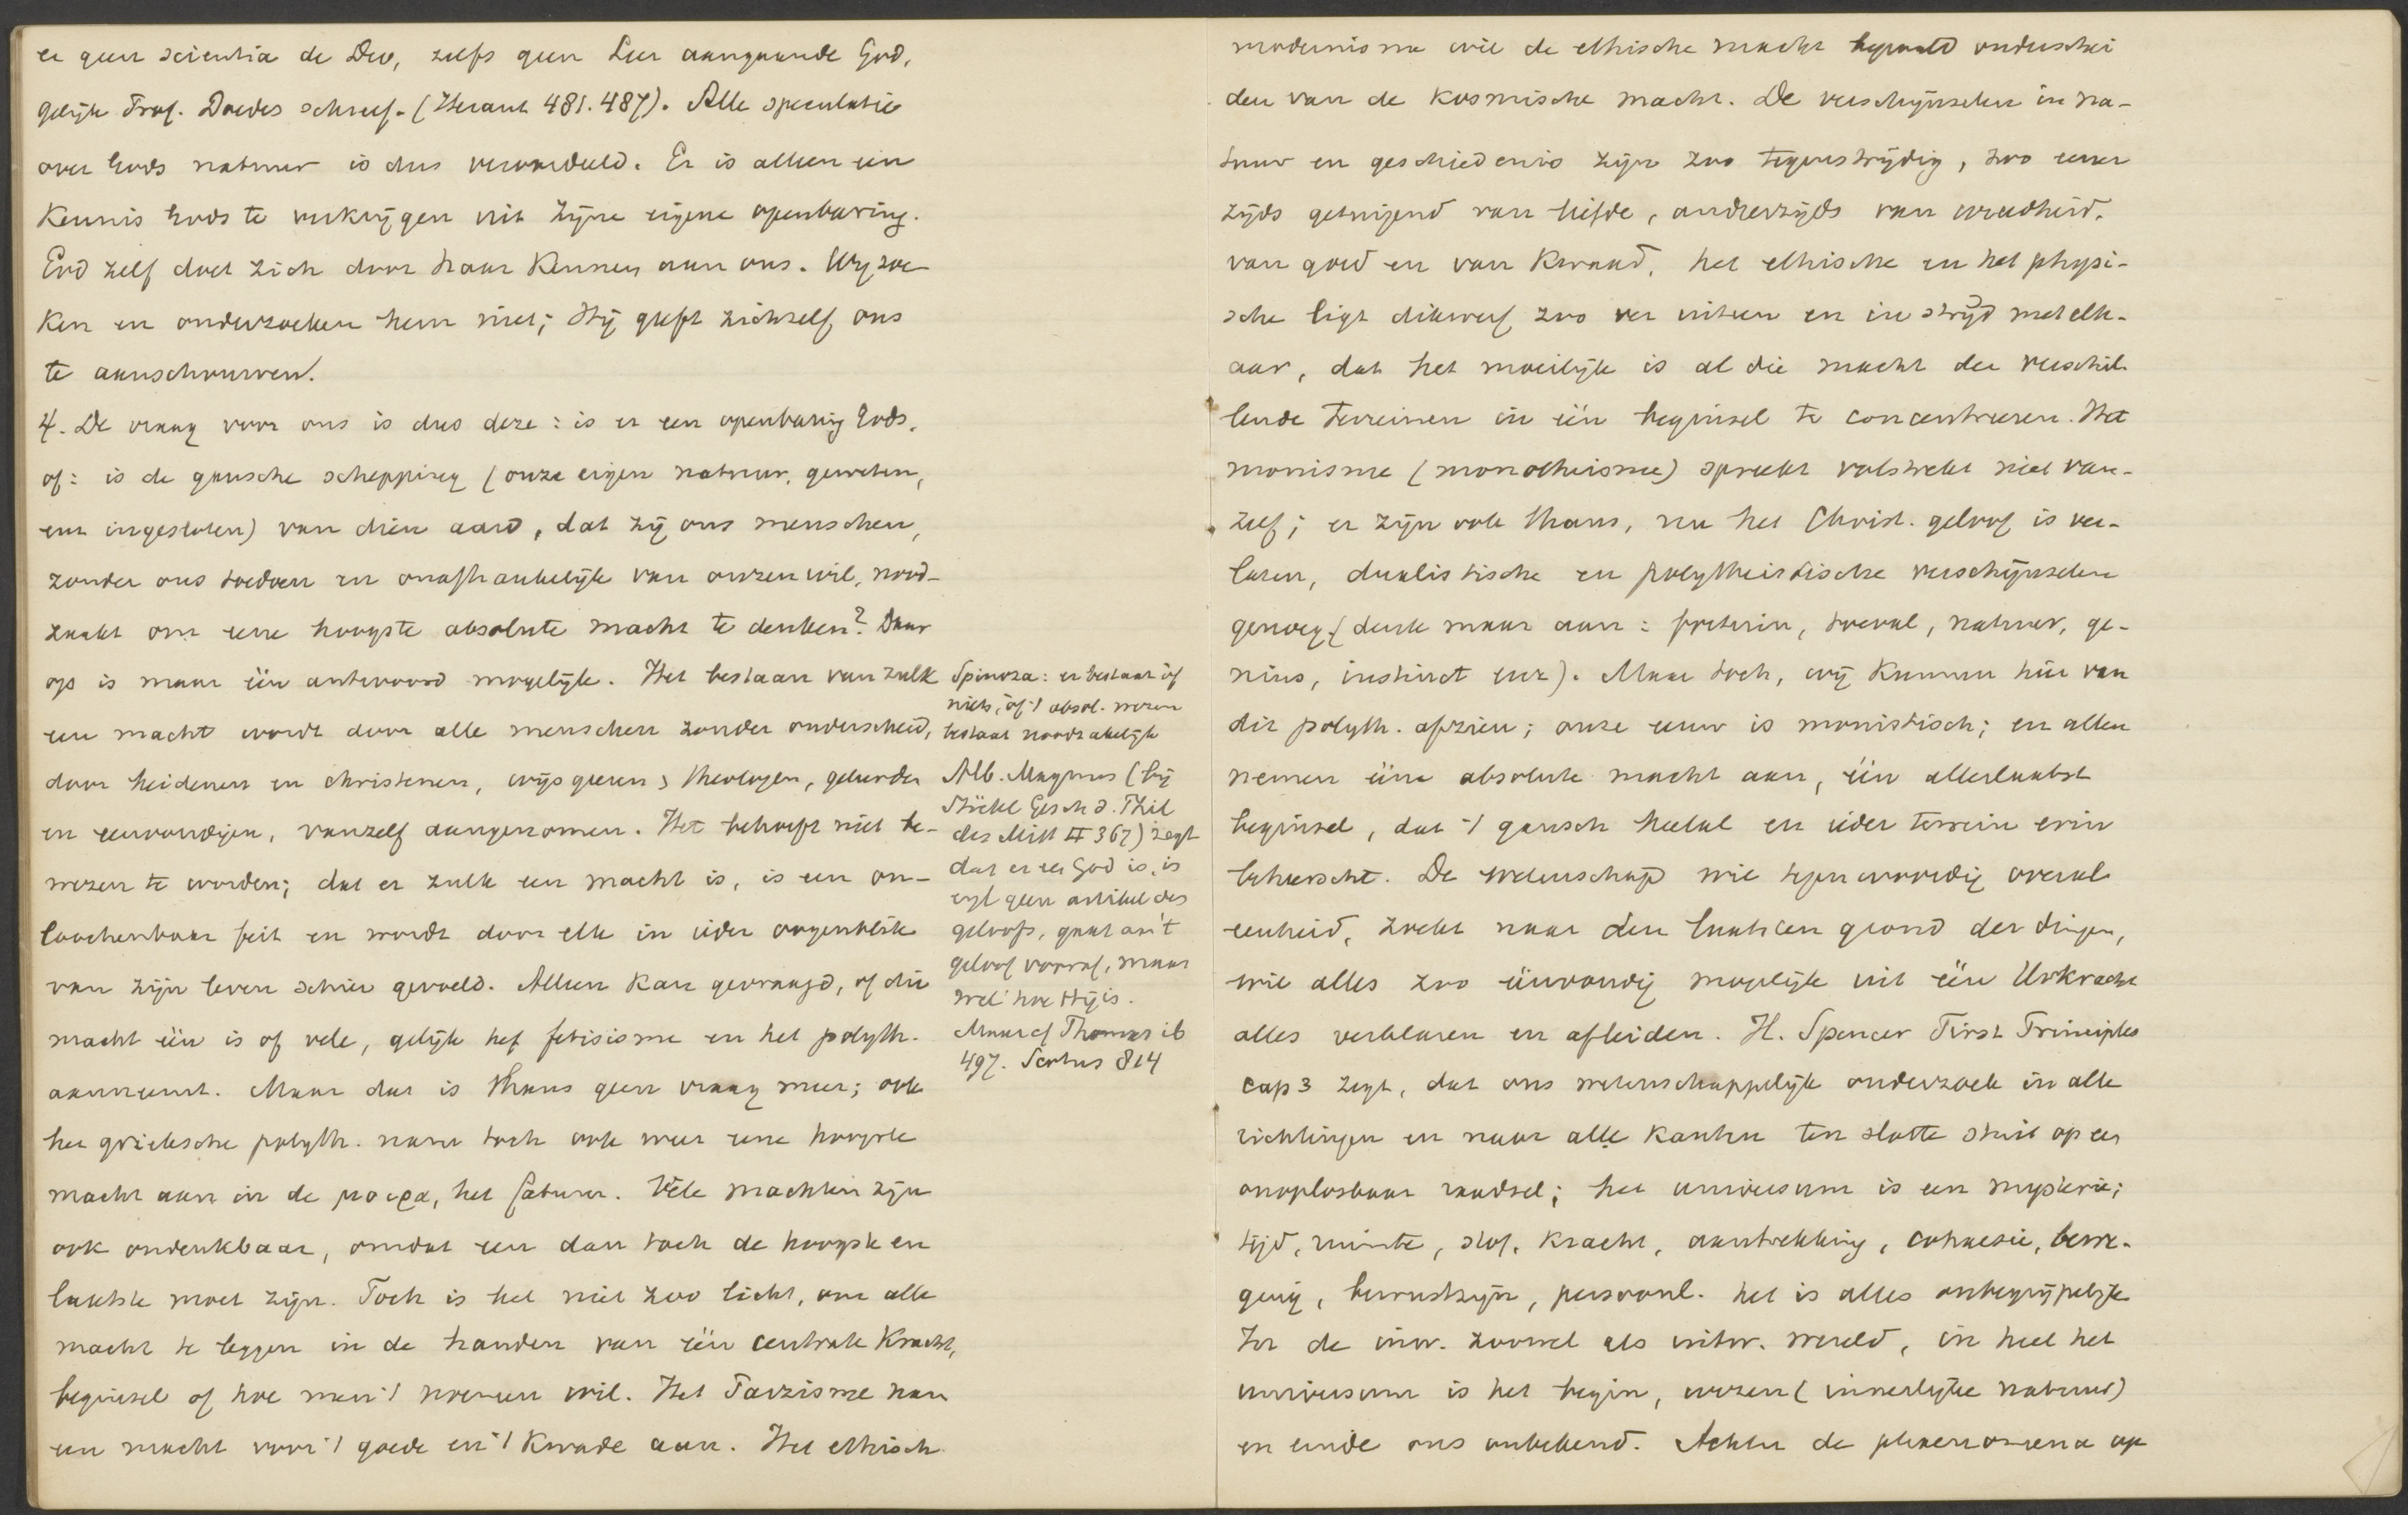 er geen scientia de Deo, zelfs geen Leer aangaande God,
gelijk Prof. Doedes schreef. (Heraut 481. 487). Alle speculatie
over Gods natuur is dus veroordeeld. Er is alleen een
Kennis Gods te verkrijgen uit Zijne eigene openbaring.
God zelf doet zich door haar Kennen aan ons. Wij zoe-
ken en onderzoeken hem niet; Hij geeft zichzelf ons
te aanschouwen.
4. De vraag voor ons is dus deze: is er een openbaring Gods,
of: is de gansche schepping (onze eigen natuur, geweten,
enz ingesloten) van dien aard, dat zij ons menschen,
zonder ons toedoen en onafhankelijk van onzen wil, nood-
zaakt om eene hoogste absolute macht te denken? Daar
op is maar één antwoord mogelijk. Het bestaan van zulk
een macht wordt door alle menschen zonder onderscheid,
door heidenen en christenen, wijsgeeren, theologen, geleerden
en eenvoudigen, vanzelf aangenomen. Het behoeft niet be-
wezen te worden; dat er zulk een macht is, is een on-
loochenbaar feit en wordt door elk in ieder oogenblik
van zijn leven schier gevoeld. Alleen kan gevraagd, of die
macht één is of vele, gelijk het fetisisme en het polyth.
aanneemt. Maar dat is thans geen vraag meer; ook
het grieksche polyth. nam toch ook weer eene hoogste
macht aan in de μοιρα, het fatum. Vele machten zijn
ook ondenkbaar, omdat een dan toch de hoogste en
laatste moet zijn. Toch is het niet zoo licht, om alle
macht te leggen in de handen van één centrale Kracht,
beginsel of hoe men 't noemen wil. Het Parzisme nam
een macht voor 't goede en 't Kwade aan. Het ethisch
Spinoza: er bestaat òf
niets, òf 't absol. wezen
bestaat noodzakelijk
Alb. Magnus (bij
Stöckl Gesch d. Phil
des Mitt II 367) zegt
dat er een God is, is
eigl geen artikel des
geloofs, gaat aan 't
geloof vooraf, maar
wel hoe Hij is.
Maar cf Thomas ib
497. Scotus 814
modernisme wil de ethische macht bepaald onderschei
den van de Kosmische macht. De verschijnselen in na-
tuur en geschiedenis zijn zoo tegenstrijdig, zoo eener
zijds getuigend van liefde, anderzijds van wreedheid.
van goed en van Kwaad, het ethische en het physi-
sche ligt dikwerf zoo ver uiteen en in strijd met elk-
aar, dat het moeilijk is al die macht der verschil-
lende terreinen in één beginsel te concentreeren. Het
monisme (monotheisme) spreekt volstrekt niet van-
zelf; er zijn ook thans, nu het Christ. geloof is ver-
laten, dualistische en polytheistische verschijnselen
genoeg (denk maar aan: fortuin, toeval, natuur, ge-
nius, instinct enz). Maar toch, wij Kunnen hier van
dit polyth. afzien; onze eeuw is monistisch; en allen
nemen ééne absolute macht aan, één allerlaatst
beginsel, dat 't gansch heelal en ieder terrein erin
beheerscht. De wetenschap wil tegenwoordig overal
eenheid, zoekt naar den laatsten grond der dingen,
wil alles zoo éénvoudig mogelijk uit één Urkracht
alles verklaren en afleiden. H. Spencer First Principles
cap 3 zegt, dat ons wetenschappelijk onderzoek in alle
richtingen en naar alle Kanten ten slotte stuit op een
onoplosbaar raadsel; het universum is een mysterie;
tijd, ruimte, stof, Kracht, aantrekking, cohaesie, bewe-
ging, bewustzijn, persoonl. het is alles onbegrijpelijk
In de inw. zoowel als uitw. wereld, in heel het
universum is het begin, wezen (innerlijke natuur)
en einde ons onbekend. Achter de phaenomena op